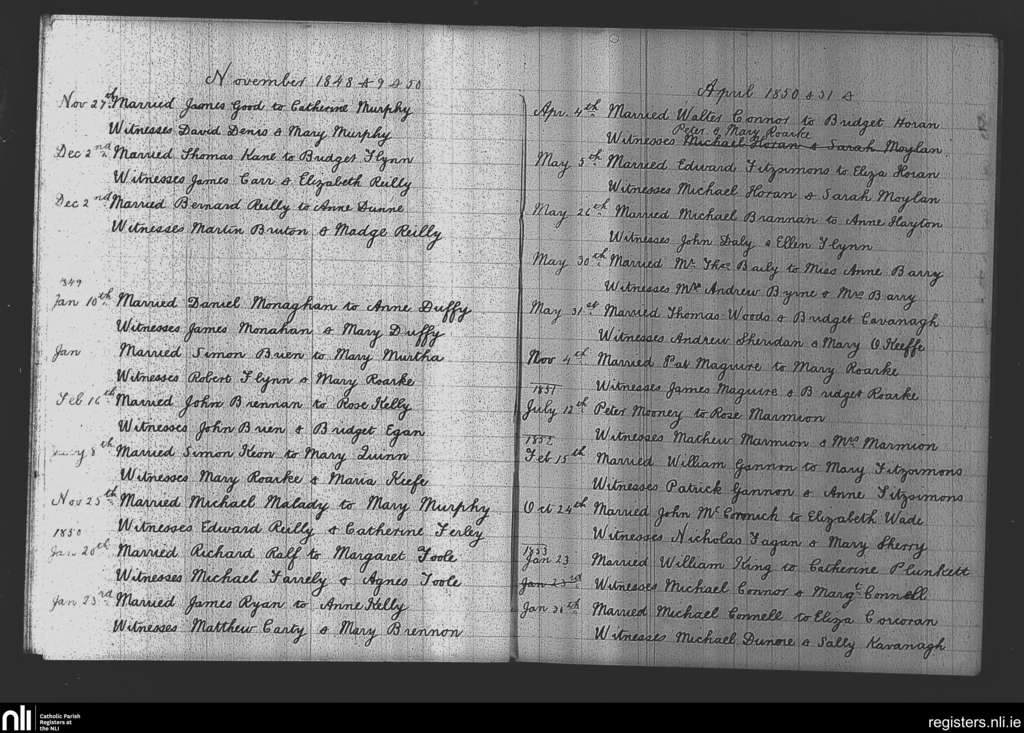 November 1848 & 9 & 50
Nov 27th Married James Good to Catherine Murphy
Witnesses David Denis & Mary Murphy
Dec 2nd Married Thomas Kane to Bridget Flynn
Witnesses James Carr & Elizabeth Reilly
Dec 2nd Married Bernard Reilly to Anne Dunne
Witnesses Martin Bruton & Madge Reilly
1849
Jan 10th Married Daniel Monaghan to Anne Duffy
Witnesses James Monahan & Mary Duffy
Jan Married Simon Brien to Mary Murtha
Witnesses Robert Flynn & Mary Roarke
Feb 16th Married John Brennan to Rose Kelly
Witnesses John Brien & Bridget Egan
8th Married Simon Keon to Mary Quinn
Witnesses Mary Roarke & Maria Kiefe
Nov 25th Married Michael Malady to Mary Murphy
1850 Witnesses Edward Reilly & Catherine Ferley
Jan 20th Married Richard Ralf to Margaret Toole
Witnesses Michael Farrely & Agnes Toole
Jan 23rd Married James Ryan to Anne Kelly
Witnesses Matthew Carty & Mary Brennon
April 1850 & 51 &
Apr. 4th Married Walter Connor to Bridget Horan
Peter & Mary Roarke
Witnesses Michael Horan & Sarah Moylan.
May 5th Married Edward Fitzsimons to Eliza Horan
Witnesses Michael Horan & Sarah Moylan
May 26th Married Michael Brannan to Anne Hayton
Witnesses John Daly & Ellen Flynn
May 30th Married Mr Thos Baily to Miss Anne Barry
Witnesses Mr Andrew Byrne & Mrs Barry
May 31st Married Thomas Woods & Bridget Cavanagh
Witnesses Andrew Sheridan & Mary O Keeffe
Nov 4th Married Pat Maguire to Mary Roarke
1851 Witnesses James Maguire & Bridget Roarke
July 12th Peter Mooney to Rose Marmion
1852 Witnesses Mathew Marmion & Mrs Marmion
Feb 15th Married William Gannon to Mary Fitzsimons
Witnesses Patrick Gannon & Anne Fitzsimons
Oct 24th Married John Mc Cormick to Elizabeth Wade
Witnesses Nicholas Fagan & Mary Sherry
1853
Jan 23 Married William King to Catherine Plunkett
Jan 23rd Witnesses Michael Connor & Margt Connell
Jan 31th Married Michael Connell to Eliza Corcoran
Witnesses Michael Dunore & Sally Kavanagh
nli Catholic Parish
Registers at
the NLI
registers.nli.ie